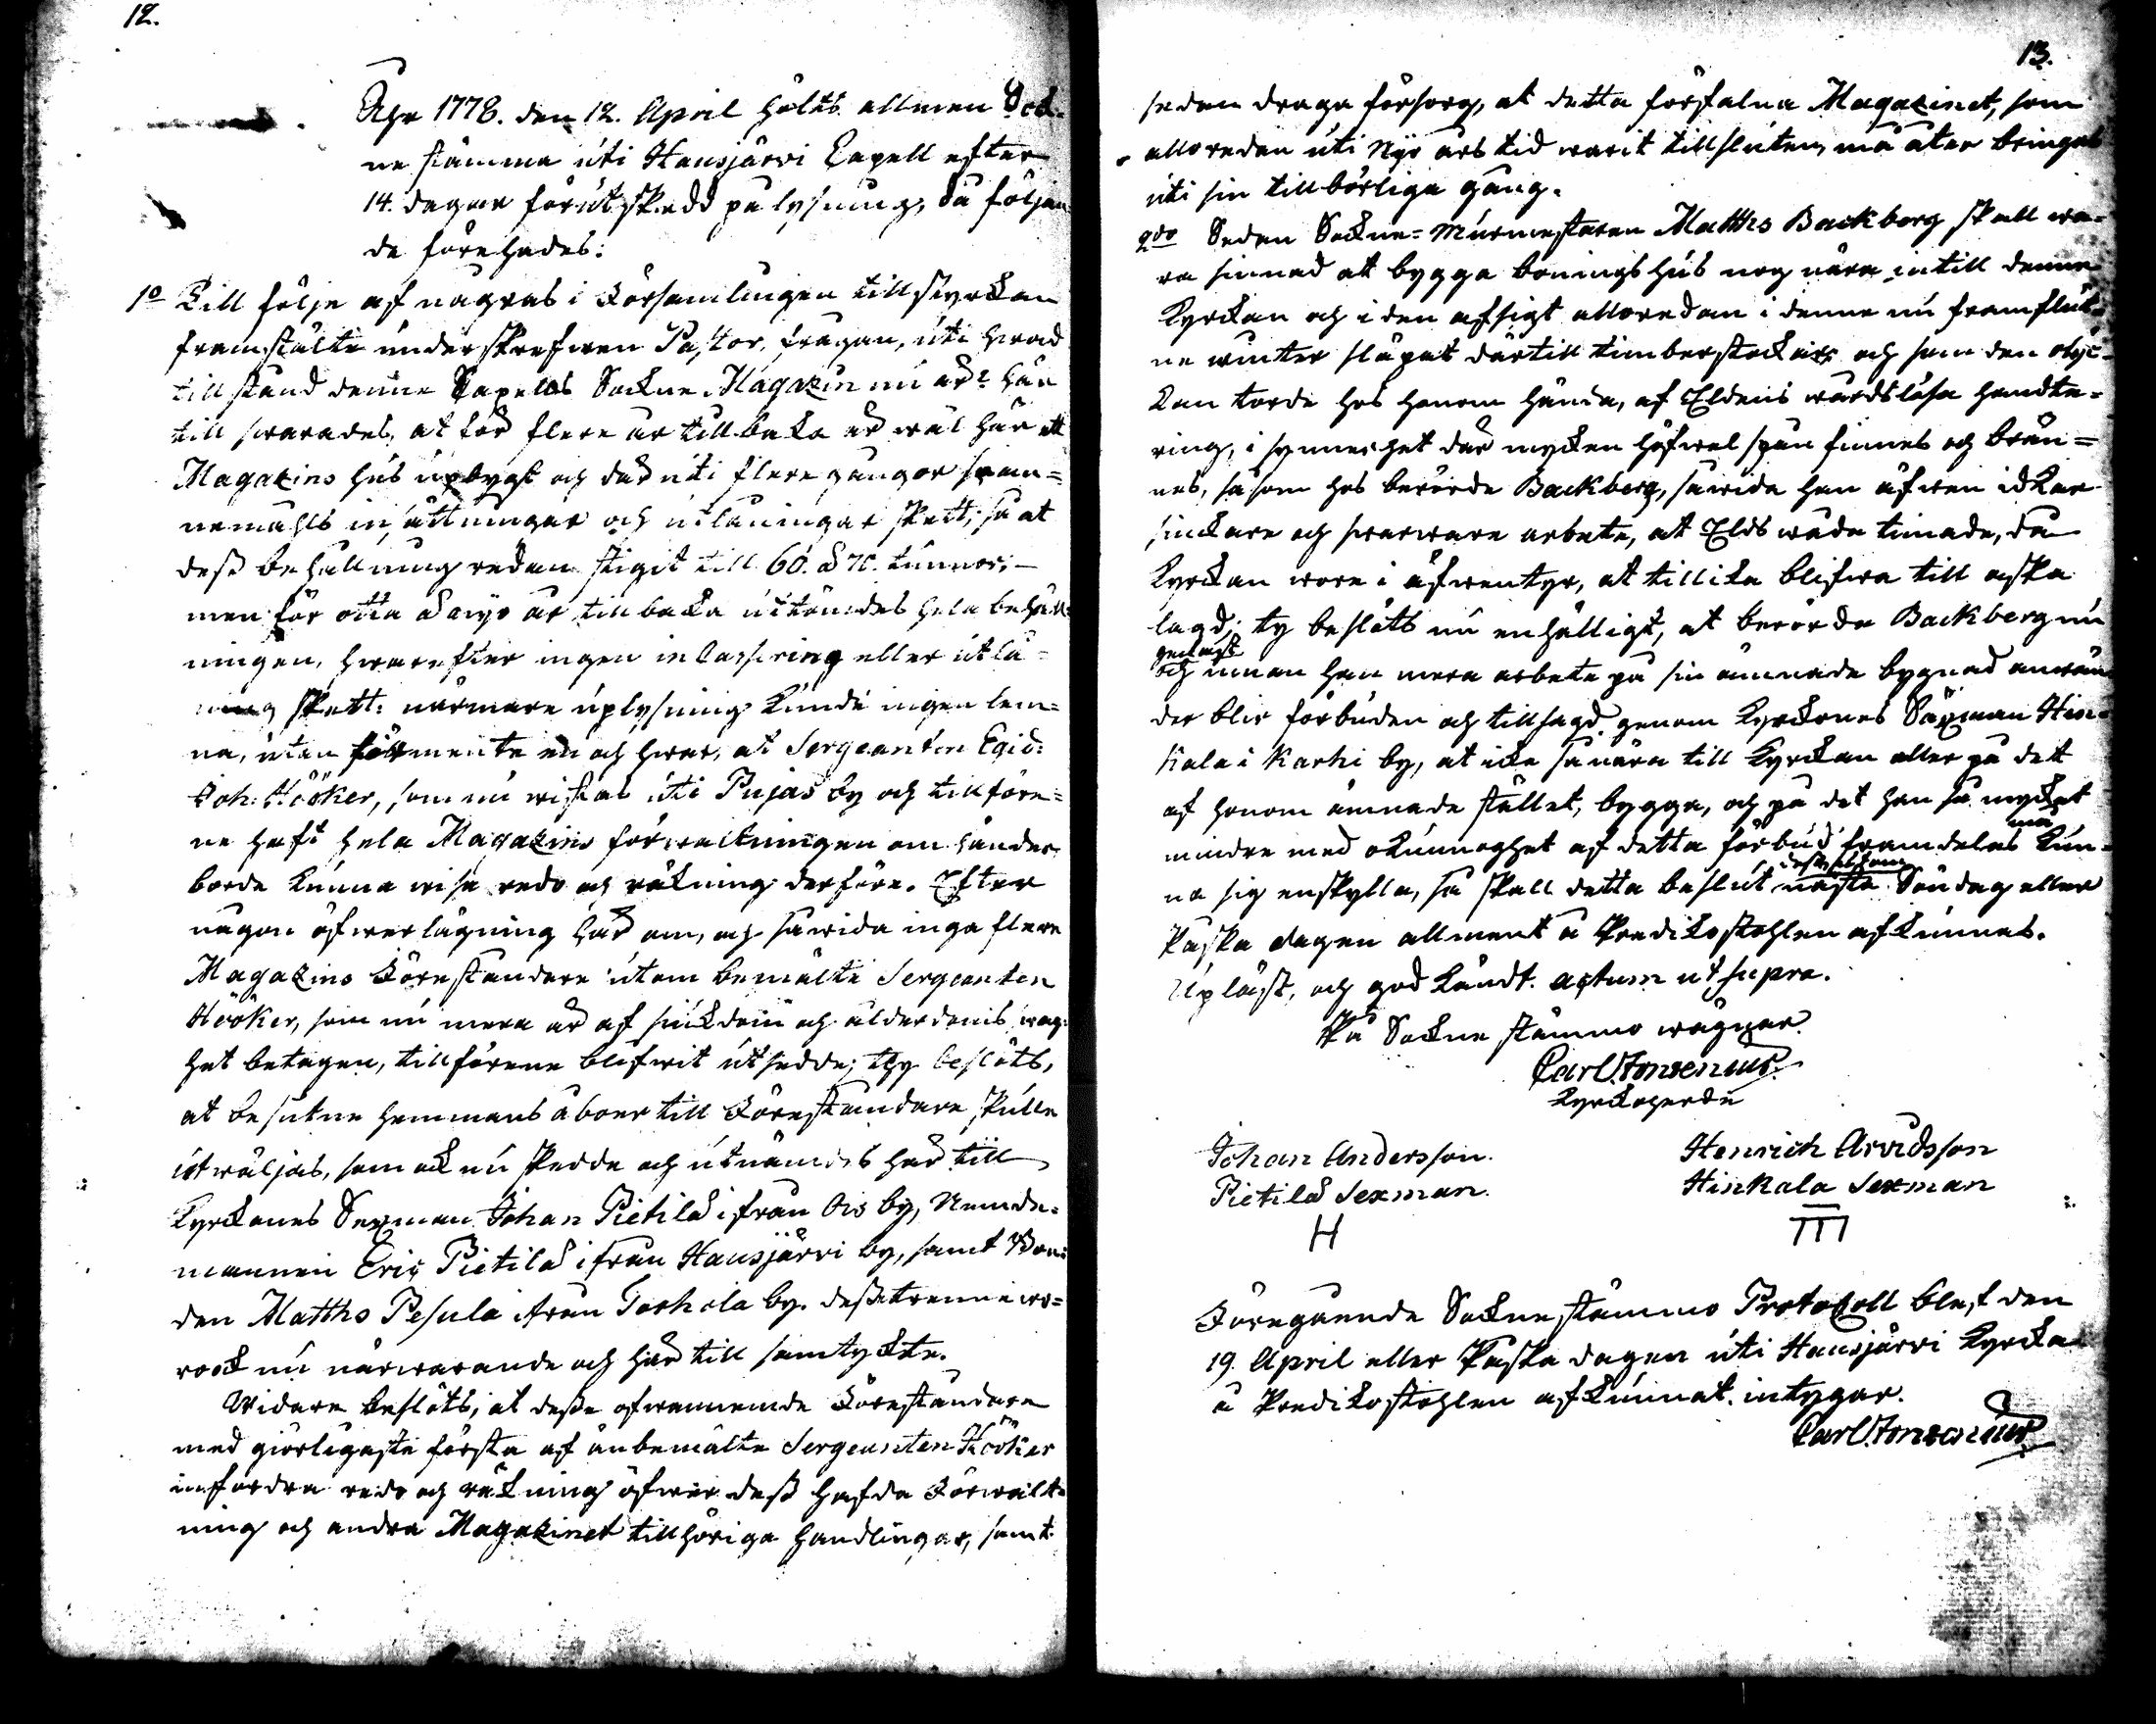 12.
Åhr 1778. den 12. April hölts allmen Sock-
ne stämma uti Hausjärvi Capell efter
14. dagar förut skedd pålysning, då följan
de förehades:
1o Till följe af någras i Församlingen tillstyrckan
framstälte underskrefwen Pastor, frågan, uti hwad
tillstånd denne Capells Sockne Magazin nu är? Här
till swarades, at för flere år tillbaka är wäl här ett
Magazins hus upbygt och där uti flere gångor span-
nemåhls insättningar och utlåningar skett, så at
dess behållning redan stigit till 60. a 70. tunnor; -
men för otta a nijo år tillbaka uttömdes hela behåll-
ningen, hwarefter ingen incassering eller utlå-
ning skett: närmare uplysning kunde ingen lem-
na, utan förmente en och hwar, at Sergeanten Egid:
Joh: Höök­er, som nu wistas uti Pujas by och tillföre-
ne haft hela Magazins förwaltningen om händer
borde kunna wisa redo och räkning derföre. Efter
någon öfwerlägning här om, och såwida inga flere
Magazins Föreståndare utom bemälte Sergeanten
Hööker, som nu mera är af siukdom och ålderdoms swag-
het betagen, tillförene blifwit utsedde; thy beslöts,
at besutne hemmans åboer till Föreståndare skulle
utwäljas, som ock nu skedde och utnämdes här till
Kyrckones Sexman Johan Pietilä ifrån Ois by, Nemde-
mannen Eric Pietilä ifrån Hausjärvi by, samt Bon-
den Matths Pesula ifrån Torhola by. dessa trenne wo-
ro ock nu närwarande och här till samtyckte.
Widare beslöts, at desse ofwannemde Föreståndare
med giörligaste första af anbemälte Sergeanten Hööker
infordra redo och räkning öfwer dess hafda Förwalt-
ning och andra Magazinet tillhöriga handlingar, samt
13.
sedan draga försorg, at detta förfalna Magazinet, som
alloredan uti Nyo års tid warit tillsluten, må åter bringas
uti sin tillbörliga gång.
2do Sedan Sockne-Murmestaren Matths Backberg skall wa-
ra sinnad at bygga boningshus nog nära intill denne
Kyrckan och i den afsigt alloredan i denne nu framflut-
ne winter släpat därtill timberstockar och som den olyc-
kan torde hos honom hända, af Eldens wårdslösa handte-
ring, i synnerhet där mycken höfwel spån finnes och brän-
nes, såsom hos berörde Backberg, såwida han äfwen idkar
snickare och swarware arbete, at Elds wåda timade, då
Kyrckan wore i äfwentyr, at tillika blifwa till aska
lagd; ty beslöts nu enhälligt, at berörde Backberg nu
genast
och innan han mera arbete på sin ämnade bygnad anwän
der blir förbuden och tillsagd genom Kyrckones Säxman Hin-
kala i Karhi by, at icke så nära till Kyrckan eller på dett
af honom ämnade stället, bygga, och på det han så mycket
må
mindre med okunnoghet af detta förbud framdeles kun-
na sig enskylla, så skall detta beslut nästa Söndag eller
Påska dagen allment å Predikostohlen afkunnas.
Upläst, och god kändt. actum ut supra.
På Sockne stämmo wägnar.
Carl Amnenius
Kyrckoherde
Johan Andersson.
Pietilä Sexman.
H
Henrich Arvidsson
Hinkala Sexman
III
Föregående Sockne stämmo Protocoll blef den
19. April eller Påska dagen uti Hausjärvi Kyrcka
å Predikostohlen afkunnat. intygar.